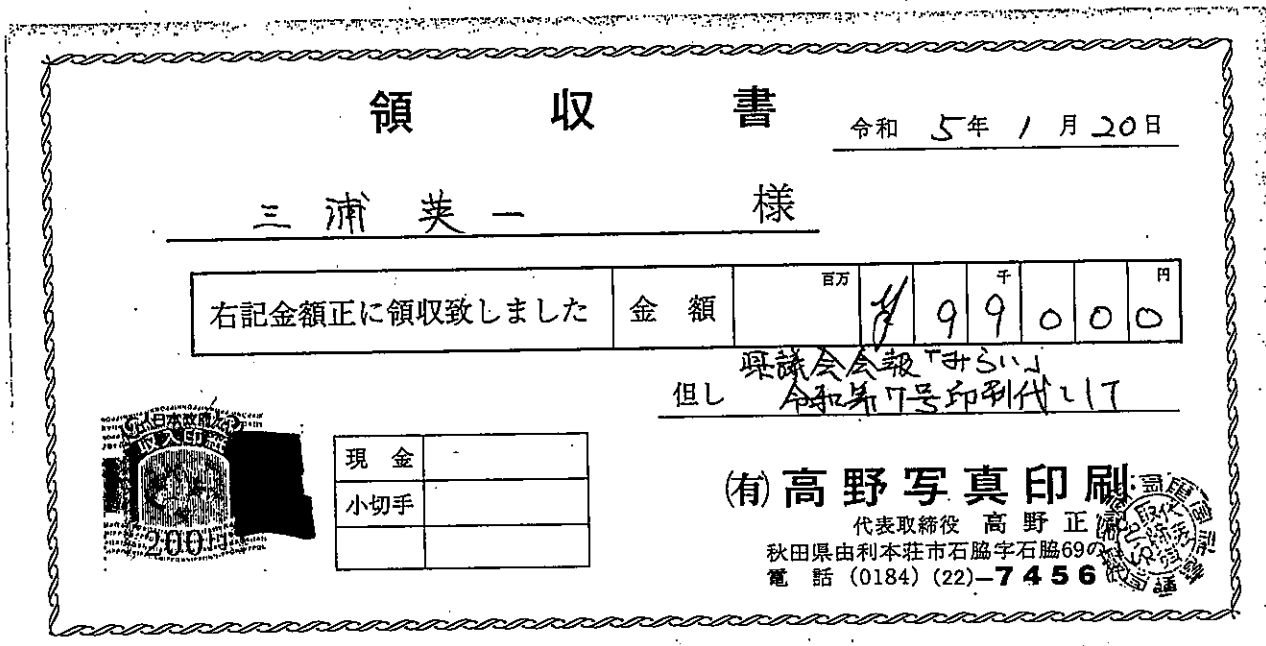 領収書
令和 5年 1月 20日
三浦英一 様
右記金額正に領収致しました 金額 百万 千 円 ¥99000
県議会会報「みらい」
但し 令和第7号印刷代として
日本政府
収入印紙
200円
現金
小切手
(有)高野写真印刷
代表取締役 高野正
秋田県由利本荘市石脇字石脇69の
電話 (0184) (22)-7456